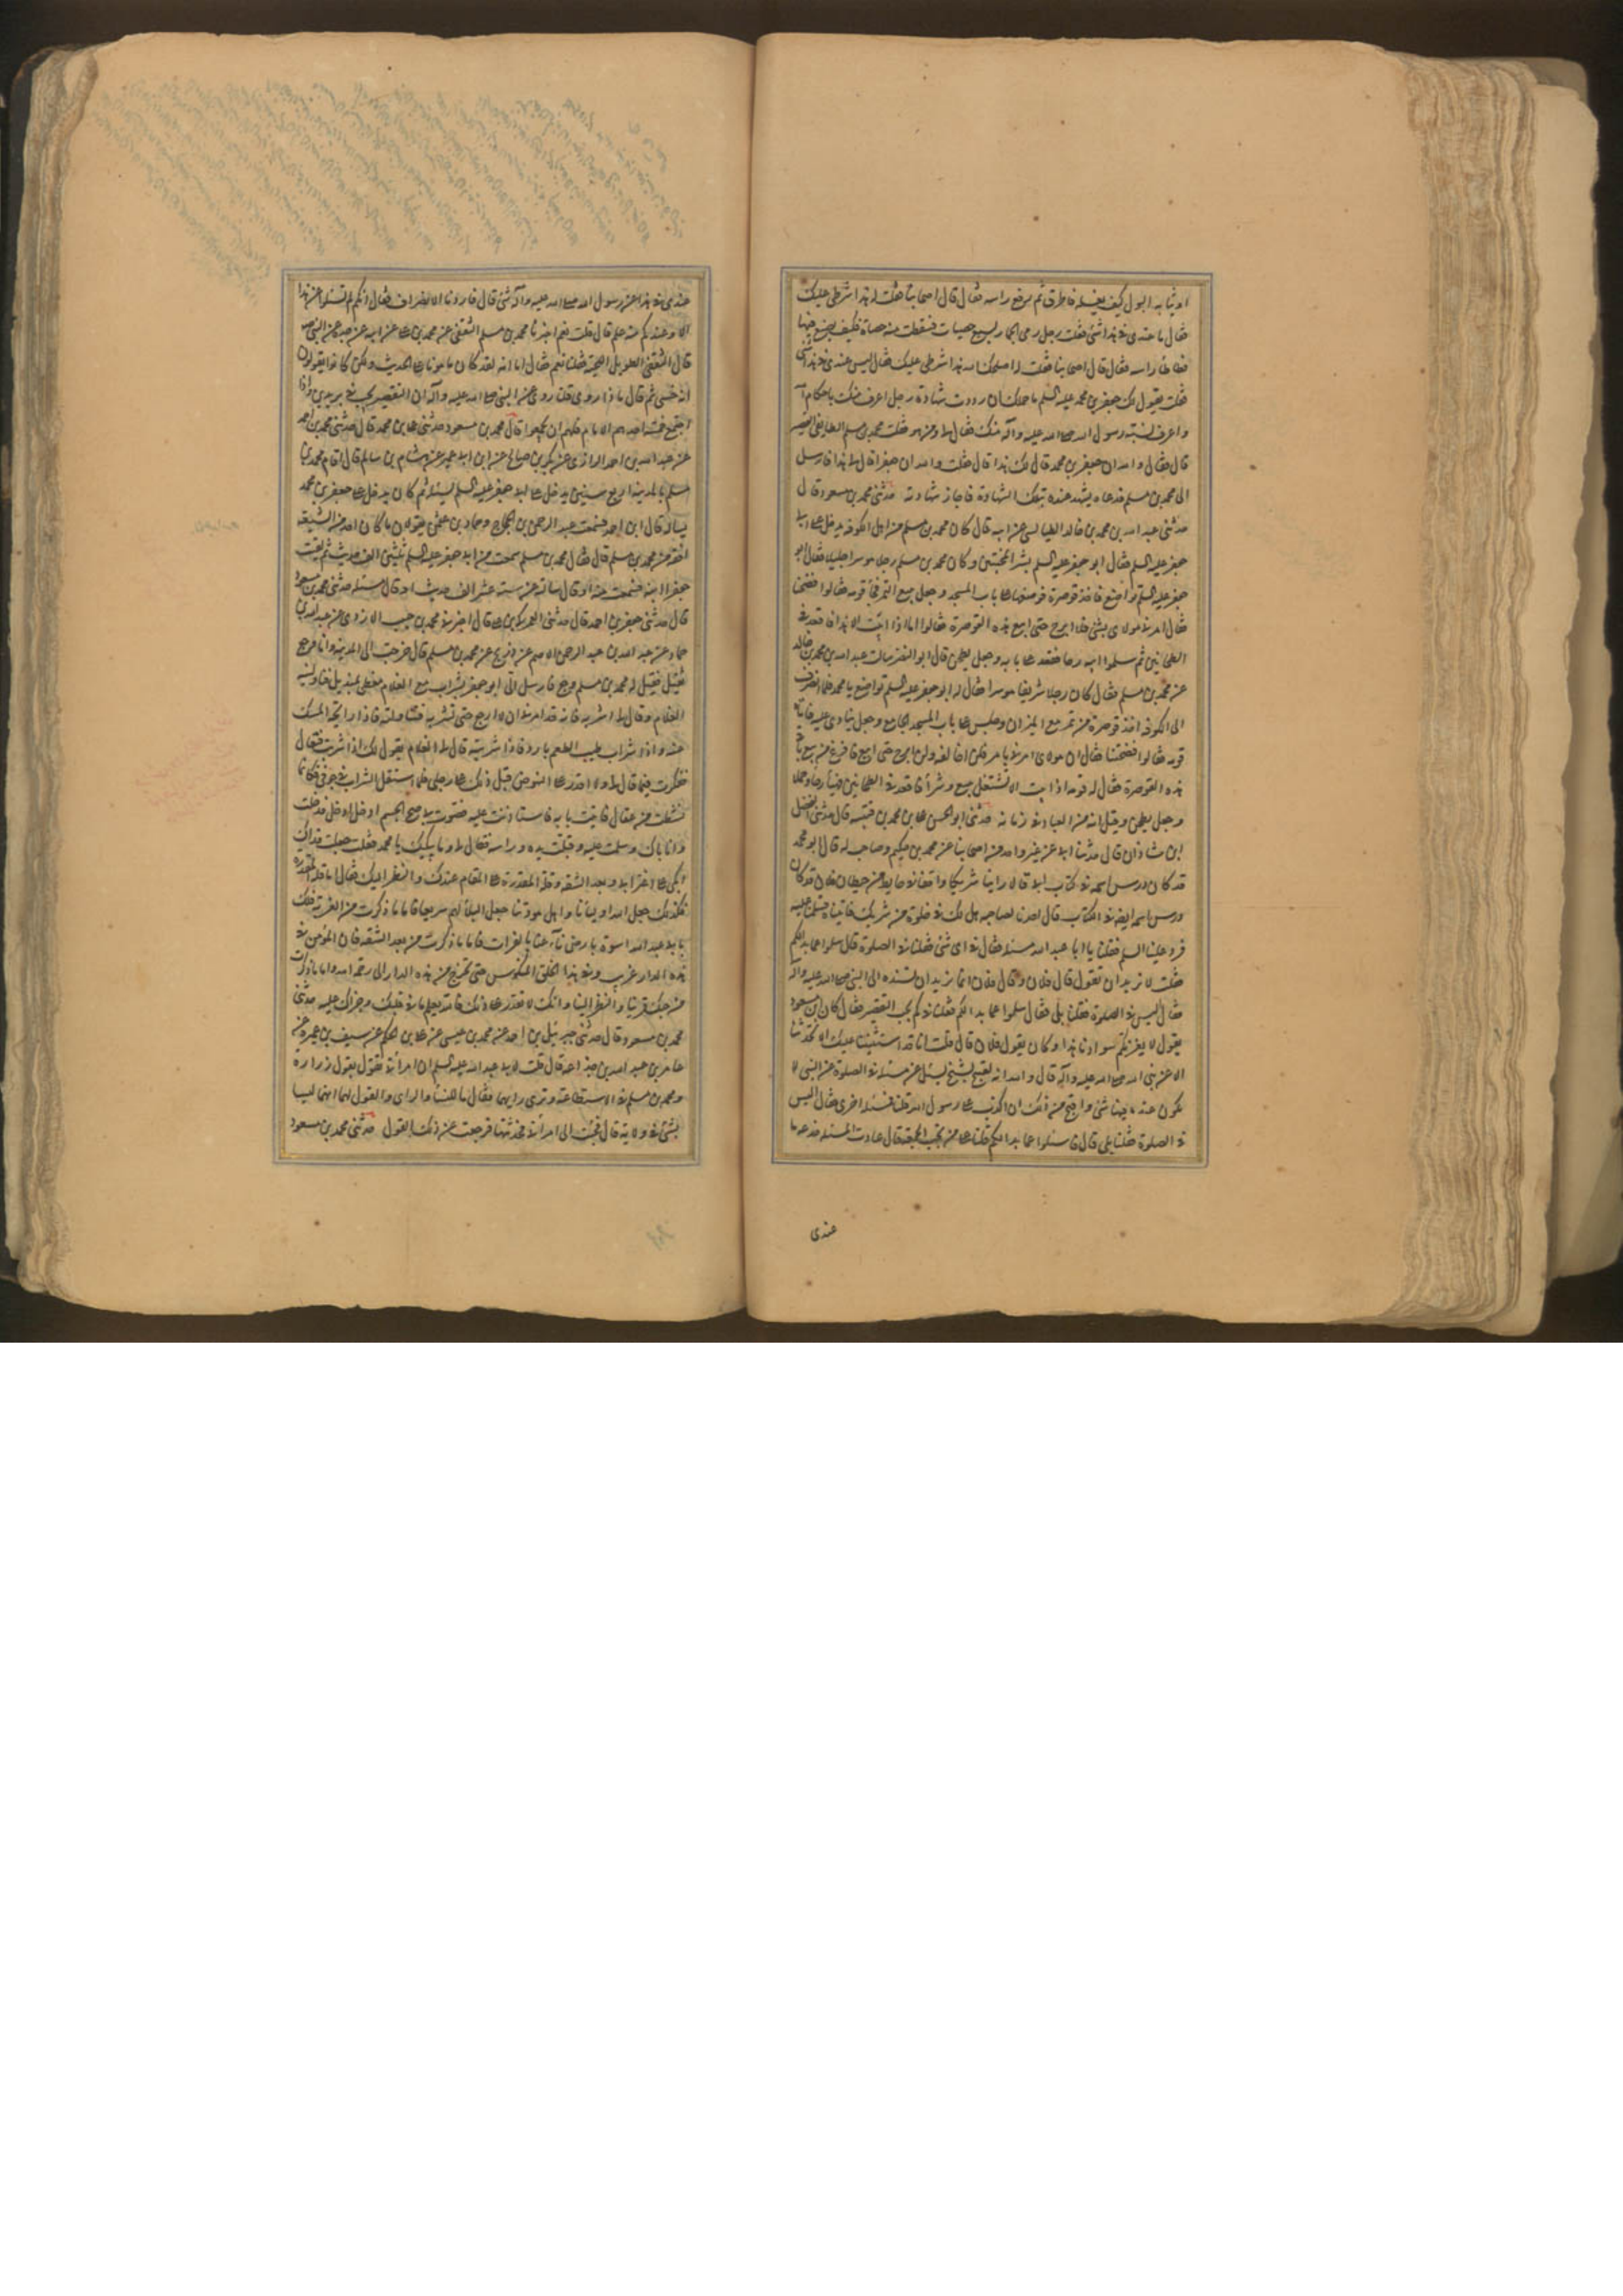 او ثيابه البول كيف يغسله فاطرق ثم رفع راسه فقال قال اصحابنا فقلت له هذا شرطى عليك
فقال ما عندى فى هذا شئ فقلت رجل رمى الجمار بسبع حصيات فسقطت منه حصاة فكيف يصنع فيها
فطاطأ راسه فقال قال اصحابنا فقلت له اصلحك الله هذا شرطى عليك فقال ليس عندى فى هذا شئ
فقلت يقول لك جعفر بن محمد عليه السلم ما حملك ان رددت شهادة رجل اعرف منك باحكام الله
واعرف لسنة رسول الله صلى الله عليه وآله منك فقال لى ومن هو فقلت محمد بن مسلم الطايفى القصير
قال فقال والله ان جعفر بن محمد قال لك هذا قال فقلت والله ان جعفرا قال لى هذا فارسل
الى محمد بن مسلم فدعاه يشهد عنده بتلك الشهادة فاجاز شهادته حدثنى محمد بن مسعود قال
حدثنى عبد الله بن محمد بن خالد الطيالسى عن ابيه قال كان محمد بن مسلم من اهل الكوفه يدخل على ابى
جعفر عليه السلم فقال ابو جعفر عليه السلم بشر المخبتين وكان محمد بن مسلم رجلا موسرا جليلا فقال ابو
جعفر عليه السلم تواضع فاخذ قوصرة فوضعها على باب المسجد وجعل يبيع التمر فجأ قومه فقالوا فضحتنا
فقال امرنى مولاى بشئ فلا ابرح حتى ابيع هذه القوصرة فقالوا اما اذا ابيت الا هذا فاقعد فى
الطحانين ثم سلموا اليه رحا فقعد على بابه وجعل يطحن قال ابو النضر سالت عبد الله بن محمد بن خالد
عن محمد بن مسلم فقال كان رجلا شريفا موسرا فقال له ابو جعفر عليه السلم تواضع يا محمد فلما انصرف
الى الكوفه اخذ قوصرة من تمر مع الميزان وجلس على باب المسجد الجامع وجعل ينادى عليه فاتاه
قومه فقالوا فضحتنا فقال ان مولاى امرنى بامر فلن اخالفه ولن ابرح حتى افرغ من بيع باقى
هذه القوصرة فقال له قومه اذا ابيت الا لتشتغل ببيع وشرأ فاقعد فى الطحانين فهيأ رحا وجملا
وجعل يطحن وقيل انه من العباد فى زمانه حدثنى ابو الحسن على بن محمد بن قتيبه قال حدثنى الفضل
ابن شاذان قال حدثنا ابى عن غير واحد من اصحابنا عن محمد بن حكيم وصاحب له قال ابو محمد
قد كان درس اسمه فى كتاب ابى قالا راينا شريكا واقفا فى حايط من حيطان فلان قد كان
درس اسمه ايضه فى الكتاب قال احدنا لصاحبه هل لك فى خلوة من شريك فاتيناه فسلمنا عليه
فرد علينا السلم فقلنا يا ابا عبد الله مسئله فقال فى اى شئ فقلنا فى الصلوة قال سلوا عما بدا لكم
فقلت لا نريد ان تقول قال فلان وقال فلان انما نريد ان تسنده الى النبى صلى الله عليه وآله
فقال اليس فى الصلوة فقلنا بلى فقال سلوا عما بدا لكم فقلنا فى كم يجب التقصير فقال كان ابن مسعود
يقول لا يغرنكم سوادنا هذا وكان يقول فلان قال قلت انا قد استثنينا عليك الا تحدثنا
الا عن نبى الله صلى الله عليه وآله قال والله انه لقبيح لشيخ يسئل عن مسئله فى الصلوة عن النبى لا
يكون عنده فيها شئ واقبح من ذلك ان اكذب على رسول الله قلنا فمسئله اخرى فقال اليس
فى الصلوة فقلنا بلى قال فاسئلوا عما بدا لكم قلنا على من تجب الجمعة قال عادت المسئله جذعه ما
عندى
عندى فى هذا عن رسول الله صلى الله عليه وآله شئ قال فاردنا الانصراف فقال انكم لم تسئلوا عن هذا
الا وعندكم منه علم قال قلت نعم اخبرنا محمد بن مسلم الثقفى عن محمد بن على عن ابيه عن جده عن النبى ص
قال الثقفى الطويل اللحية فقلنا نعم فقال اما انه لقد كان مامونا على الحديث ولكن كانوا يقولون
انه خشبى ثم قال ماذا روى قلنا روى عن النبى صلى الله عليه وآله ان التقصير يجب فى بريدين واذا
اجتمع خمسة احدهم الامام فلهم ان يجمعوا قال محمد بن مسعود حدثنى على بن محمد قال حدثنى محمد بن احمد
عن عبد الله بن احمد الرازى عن بكر بن صالح عن ابن ابى عمير عن هشام بن سالم قال اقام محمد بن
مسلم بالمدينه اربع سنين يدخل على ابى جعفر عليه السلم يسئله ثم كان يدخل على جعفر بن محمد
يساله قال ابن احمد فسمعت عبد الرحمن بن الحجاج وحماد بن عثمن يقولان ما كان احد من الشيعه
افقه من محمد بن مسلم قال فقال محمد بن مسلم سمعت من ابى جعفر عليه السلم ثلثين الف حديث ثم لقيت
جعفرا ابنه فسمعت منه او قال سالته عن ستة عشر الف حديث او قال مسئله حدثنى محمد بن مسعود
قال حدثنى جعفر بن احمد قال حدثنى العمركى بن على قال اخبرنى محمد بن حبيب الازدى عن عبد الله بن
حماد عن عبد الله بن عبد الرحمن الاصم عن ذريح عن محمد بن مسلم قال خرجت الى المدينه وانا وجع
ثقيل فقيل له محمد بن مسلم وجع فارسل الى ابو جعفر بشراب مع الغلام مغطى بمنديل فناولنيه
الغلام وقال لى اشربه فانه قد امرنى ان لا ارجع حتى تشربه فتناولته فاذا رايحة المسك
منه واذا شراب طيب الطعم بارد فاذا شربته قال لى الغلام يقول لك اذا شربت فتعال
ففكرت فيما قال لى ولا اقدر على النهوض قبل ذلك على رجلى فلما استقل الشراب فى جوفى فكانما
نشطت من عقال فاتيت بابه فاستاذنت عليه فصوت بى صح الجسم ادخل ادخل فدخلت
وانا باك وسلمت عليه وقبلت يده وراسه فقال لى وما يبكيك يا محمد فقلت جعلت فداك
ابكى على اغترابى وبعد الشقه وقلة المقدرة على المقام عندك والنظر اليك فقال اما قلة المقدرة
فكذلك جعل الله اوليأنا واهل مودتنا وجعل البلأ اليهم سريعا فاما ما ذكرت من الغربة فلك
بابى عبد الله اسوة بارض نآء عنا بالفرات فاما ما ذكرت من بعد الشقه فان المؤمن فى
هذه الدار غريب وفى هذا الخلق المنكوس حتى يخرج من هذه الدار الى رحمة الله واما ما ذكرت
من حبك قربنا والنظر الينا وانك لا تقدر على ذلك فالله يعلم ما فى قلبك وجزاك عليه حدثنى
محمد بن مسعود قال حدثنى جبرئيل بن احمد عن محمد بن عيسى عن على بن الحكم عن سيف بن عميره عن
عامر بن عبد الله بن جذاعه قال قلت لابى عبد الله عليه السلم ان امرأتى تقول بقول زراره
ومحمد بن مسلم فى الاستطاعة وترى رايهما فقال ما للنسأ والراى والقول لهما انهما ليسا
بشئ فى ولاية قال فجئت الى امرأتى فحدثتها فرجعت عن ذلك القول حدثنى محمد بن مسعود